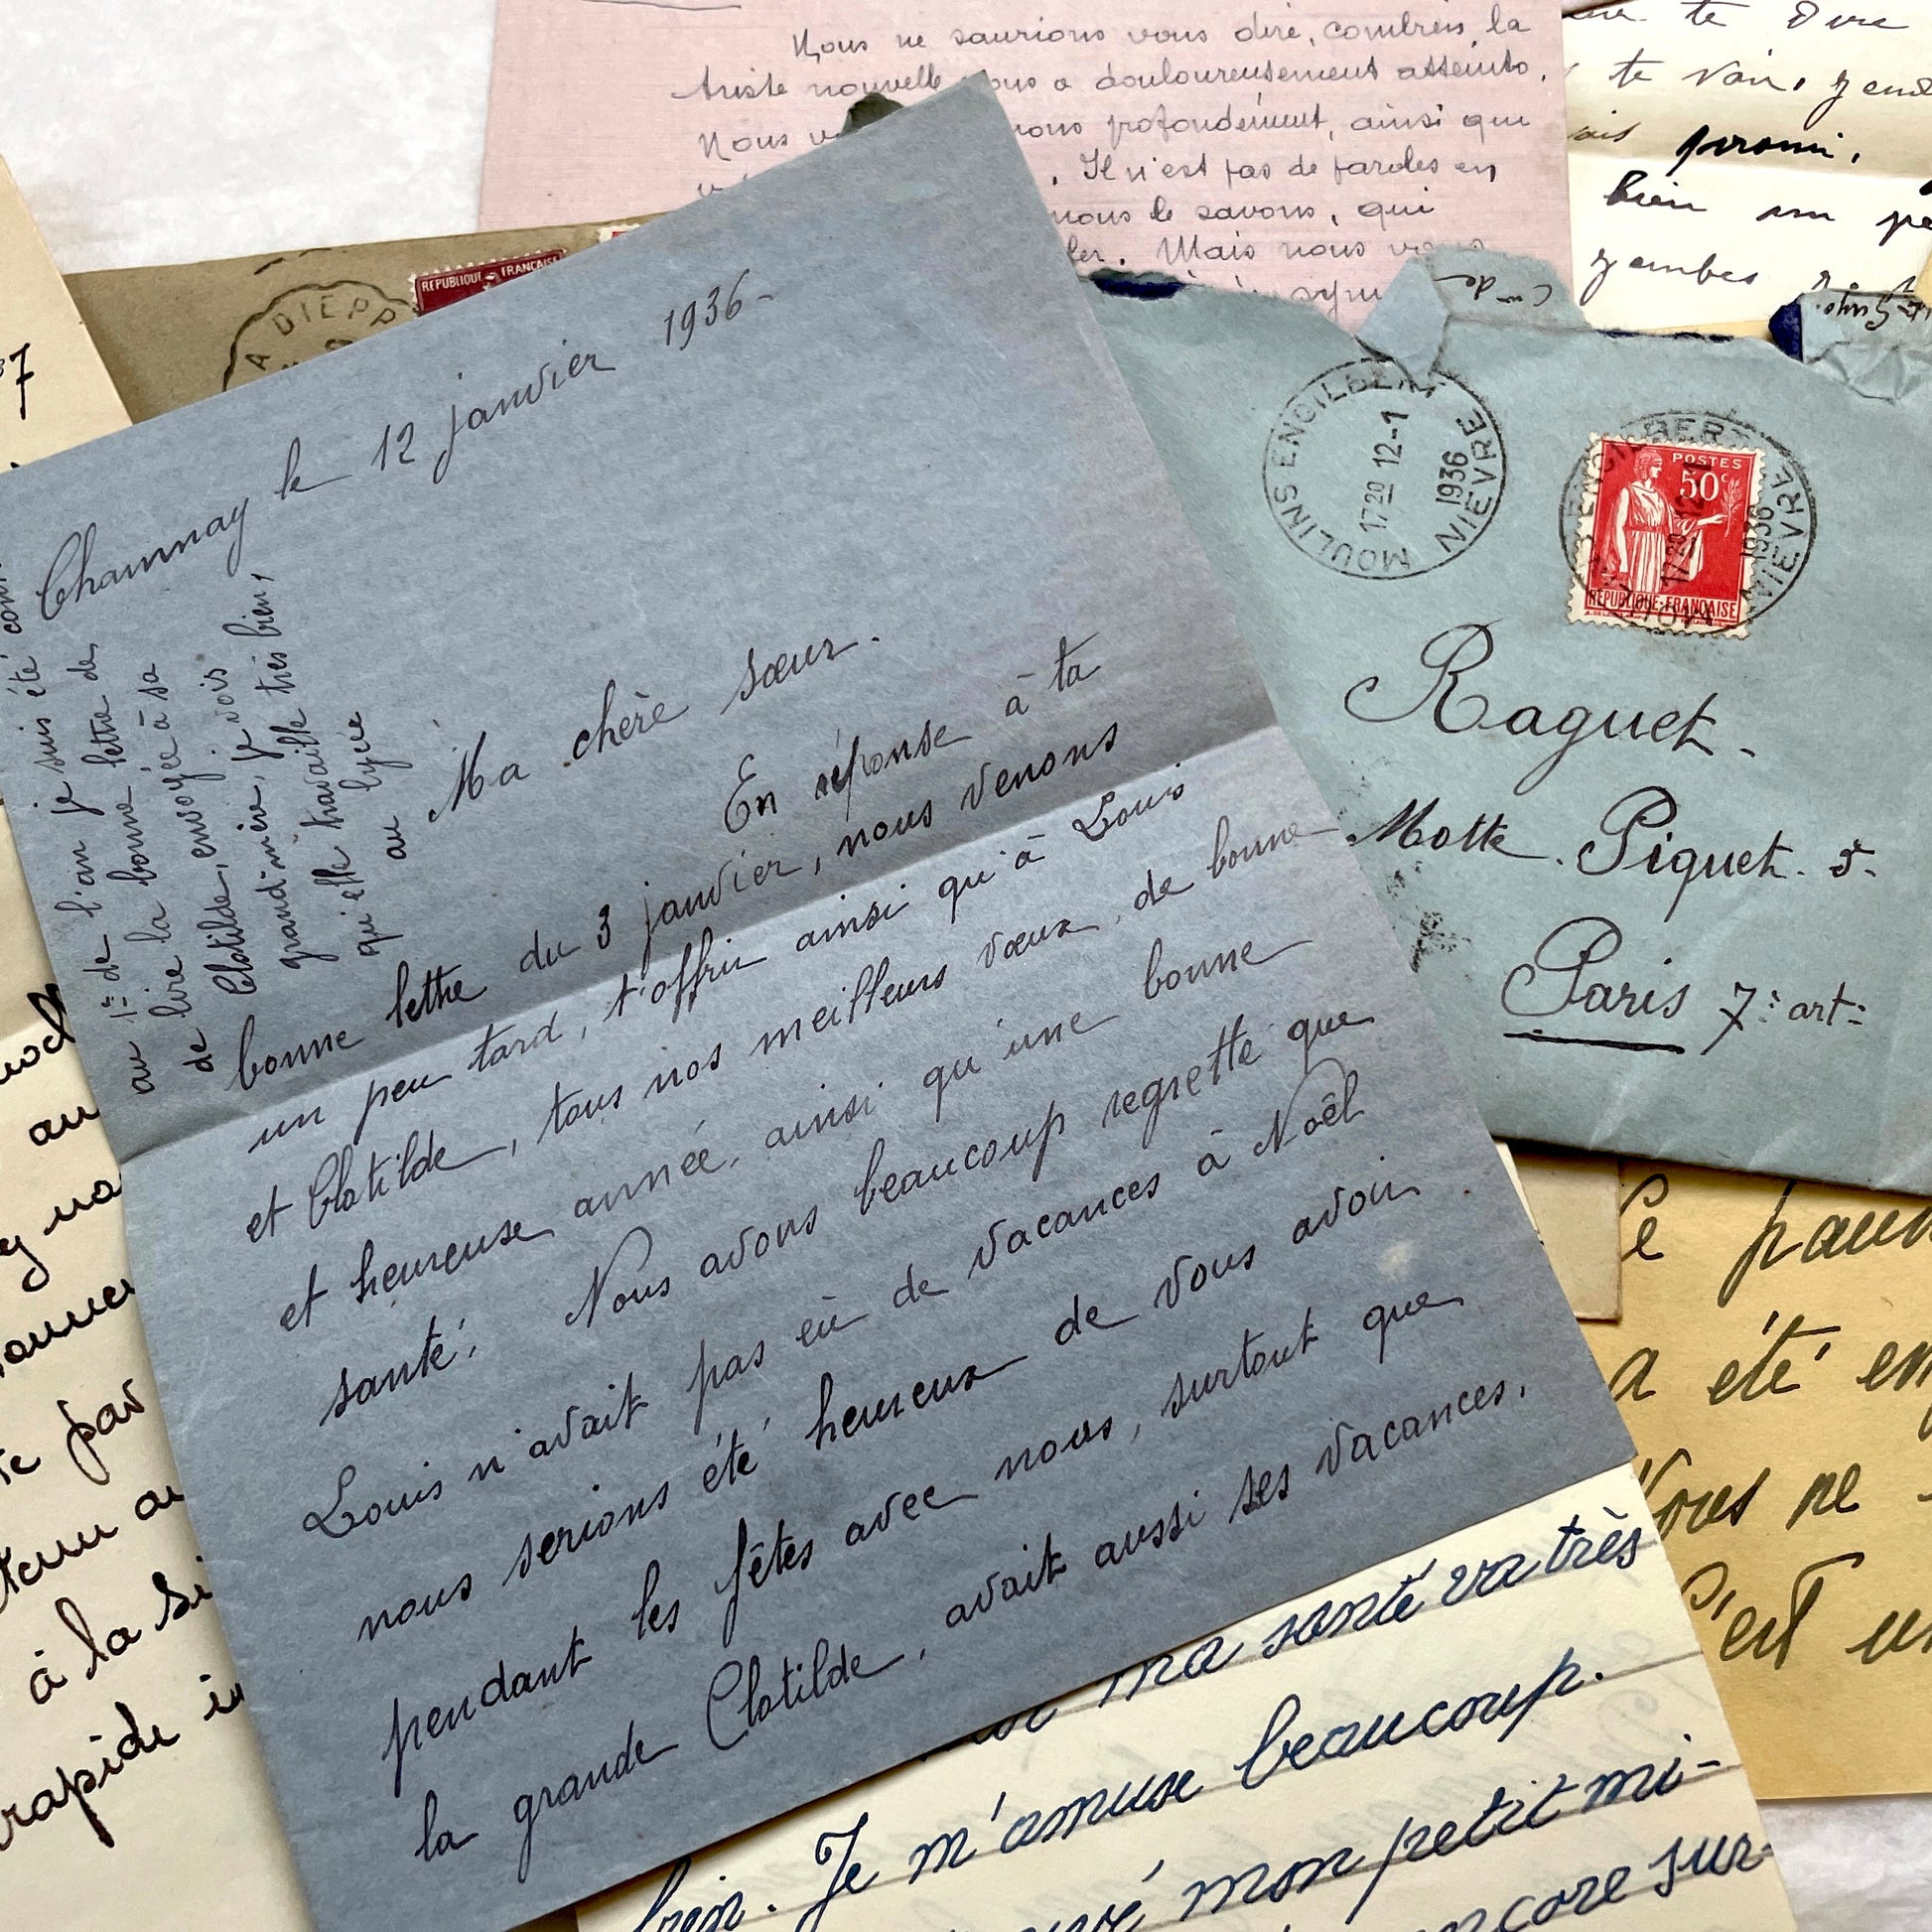 Nous ne saurions vous dire, combien, la
triste nouvelle nous a douloureusement atteints.
Nous profondément, ainsi que
. Il n'est pas de paroles en
nous le savons, qui
. Mais nous
te dire
te voir,
promi,
bien un
jambes
REPUBLIQUE FRANÇAISE
A DIEPP
7
Channay le 12 janvier 1936-
Ma chère sœur.
En réponse à ta
bonne lettre du 3 janvier, nous venons
un peu tard, t'offrir ainsi qu'à Louis
et Clotilde, tous nos meilleurs vœux, de bonne
et heureuse année, ainsi qu'une bonne
santé; Nous avons beaucoup regretté que
Louis n'avait pas eû de vacances à Noêl
nous serions été heureux de vous avoir
pendant les fêtes avec nous, surtout que
la grande Clotilde, avait aussi ses vacances.
au 1er de l'an je suis été
de lire la bonne lettre de
Clotilde, envoyée à sa
grand'mère, je vois
qu'elle travaille très bien,
au lycée
MOULINS ENGILBERT
17 20 12-1
1936
NIEVRE
POSTES
50c
REPUBLIQUE FRANÇAISE
MOULINS ENGILBERT
17 20 12-1
1936
NIEVRE
Raguet-
Motte. Piquet. 5-
Paris 7: art:
au
par
au
à la
rapide
ma santé va très
bien. Je m'amuse beaucoup.
mon petit mi-
encore sur-
a été
Vous ne
C'est